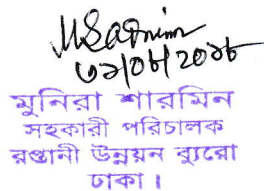 ৩১/০৮/২০১৮
মুনিরা শারমিন
সহকারী পরিচালক
রপ্তানী উন্নয়ন ব্যুরো
ঢাকা।